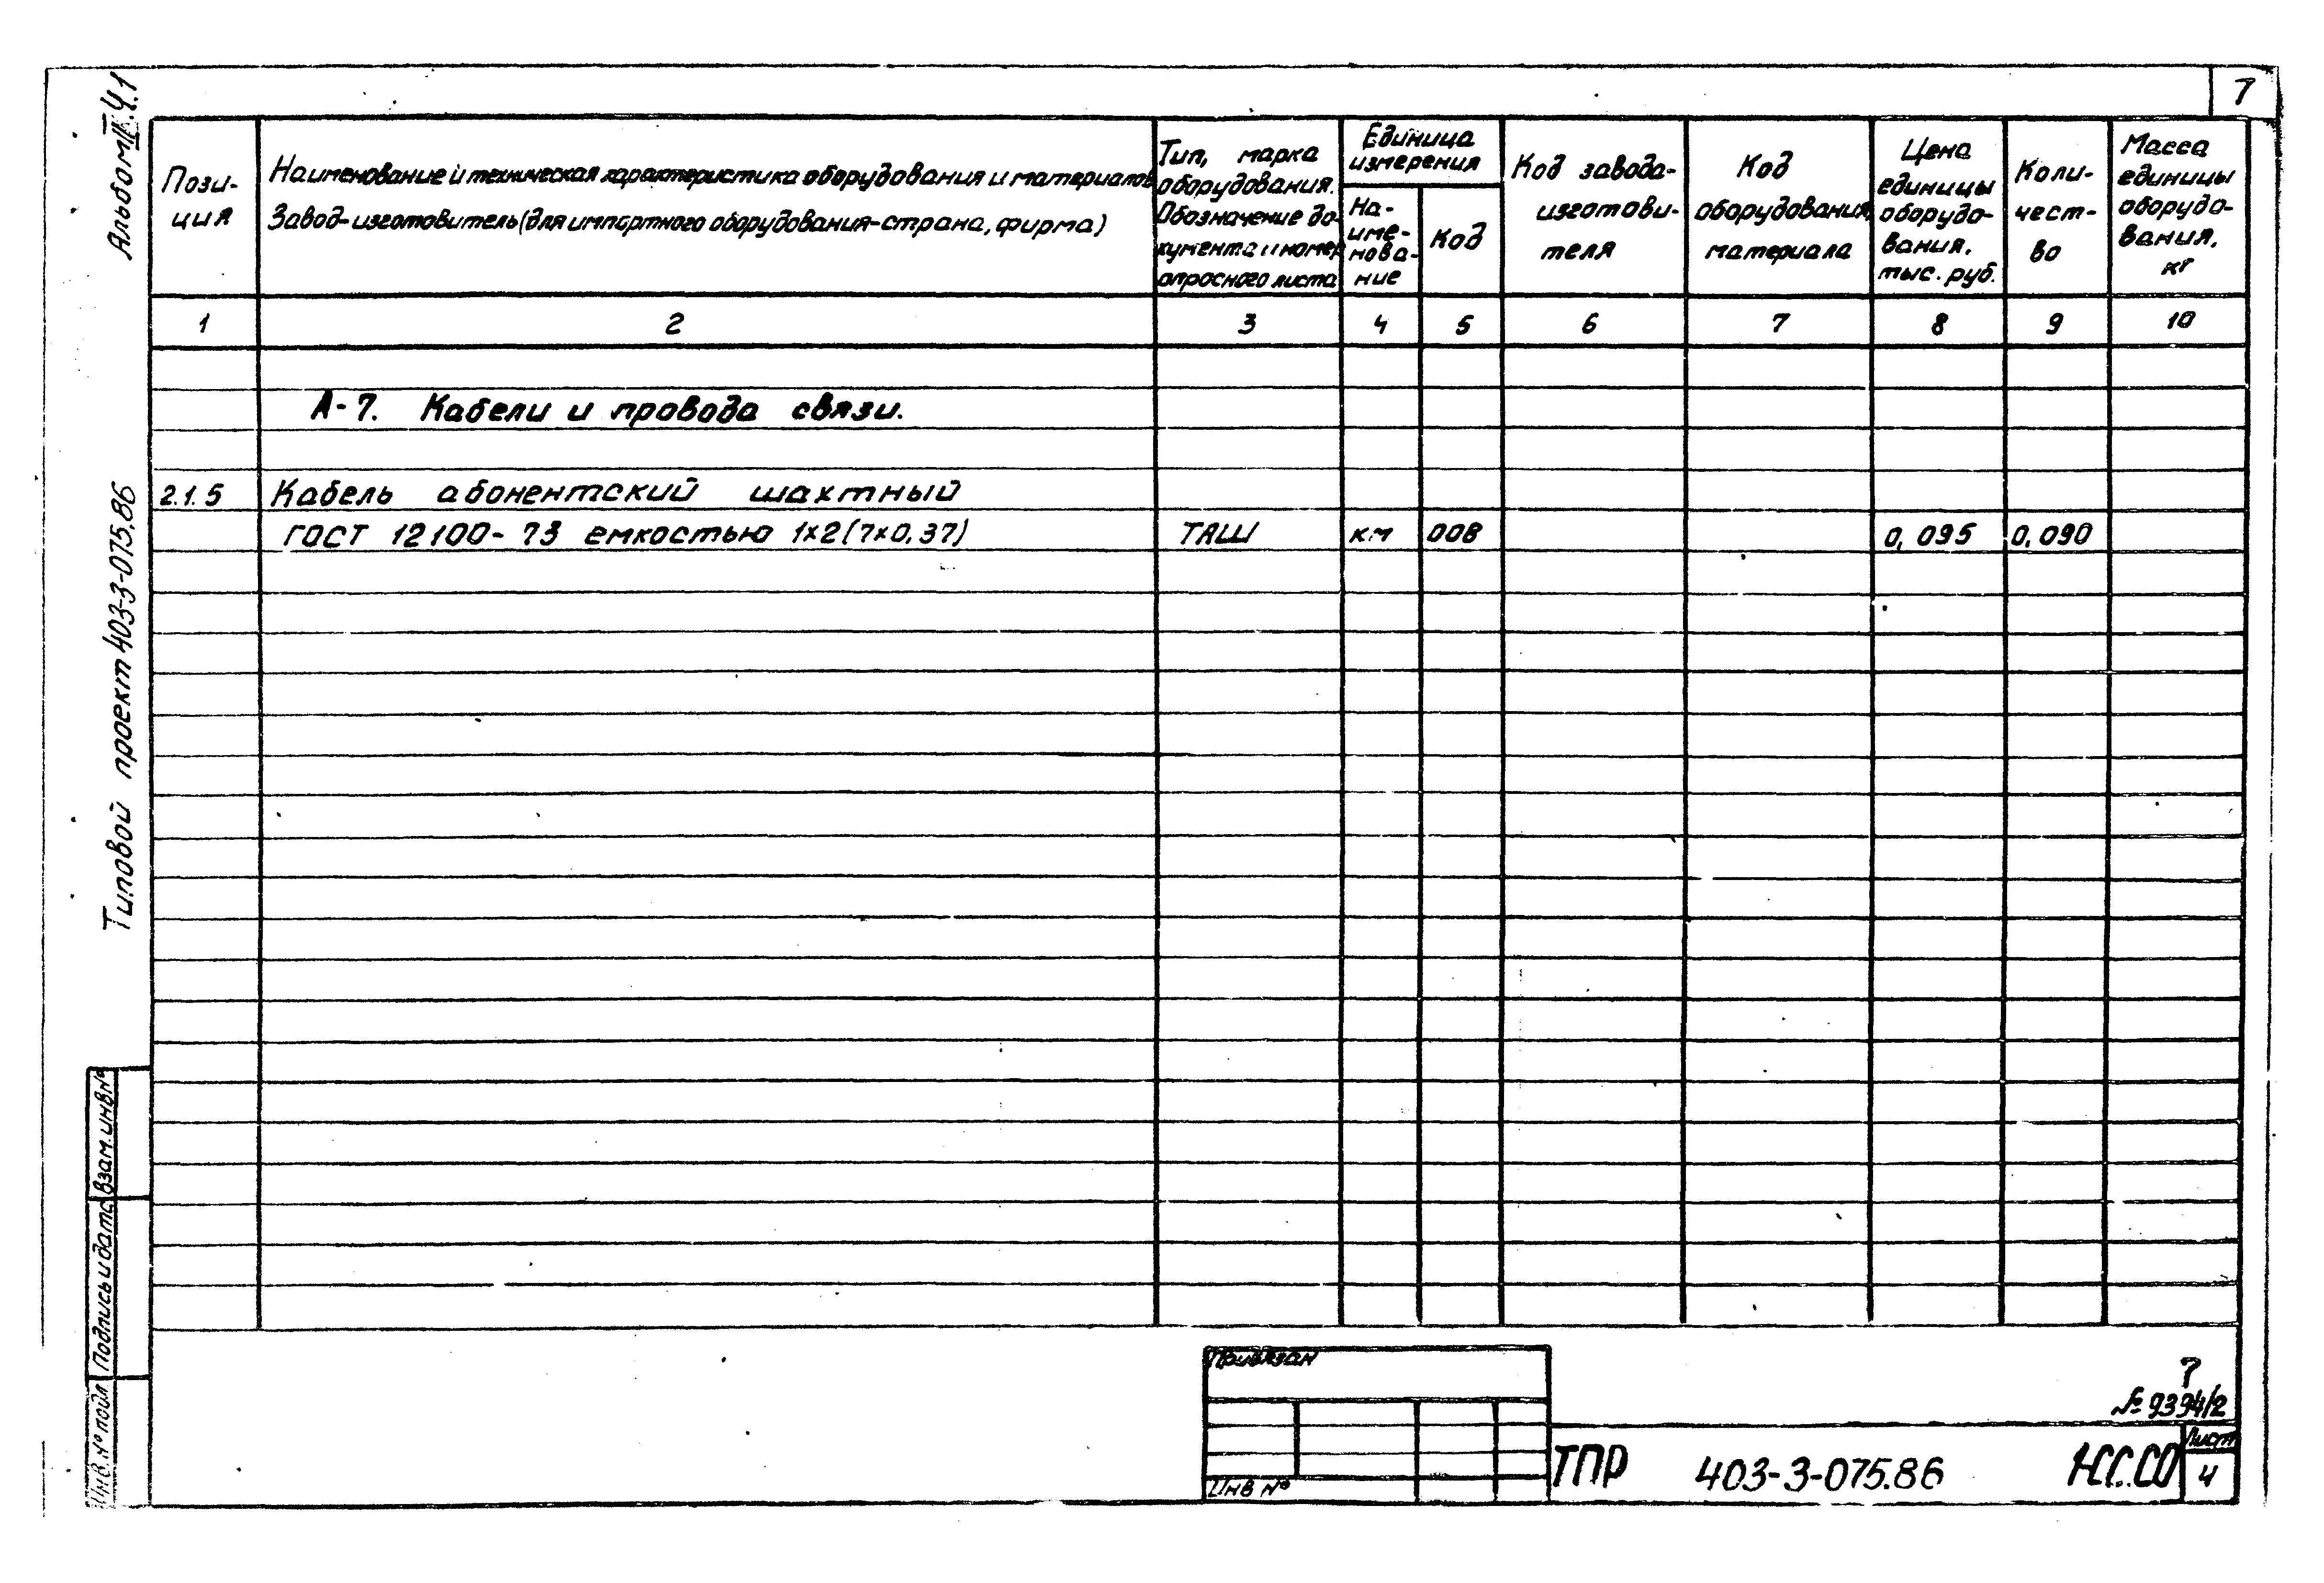 7
Альбом III Ч.1
Типовой проект 403-3-075.86
Пози-
ция
Наименование и техническая характеристика оборудования и материалов
Завод-изготовитель (для импортного оборудования-страна, фирма)
Тип, марка
оборудования.
Обозначение до-
кумента и номер
опросного листа
Единица
измерения
На-
име-
нова-
ние
Код
Код завода-
изготови-
теля
Код
оборудования,
материала
Цена
единицы
оборудо-
вания,
тыс. руб.
Коли-
чест-
во
Масса
единицы
оборудо-
вания,
кг
1 2 3 4 5 6 7 8 9 10
А-7. Кабели и провода связи.
2.1.5 Кабель абонентский шахтный
ГОСТ 12100-73 емкостью 1×2(7×0,37) ТАШ км 008 0,095 0,090
Взам.инв№
Подпись и дата
Инв.№ подл
Привязан
Инв №
7
№ 9394/2
ТПР 403-3-075.86 СС.СО
Лист
4